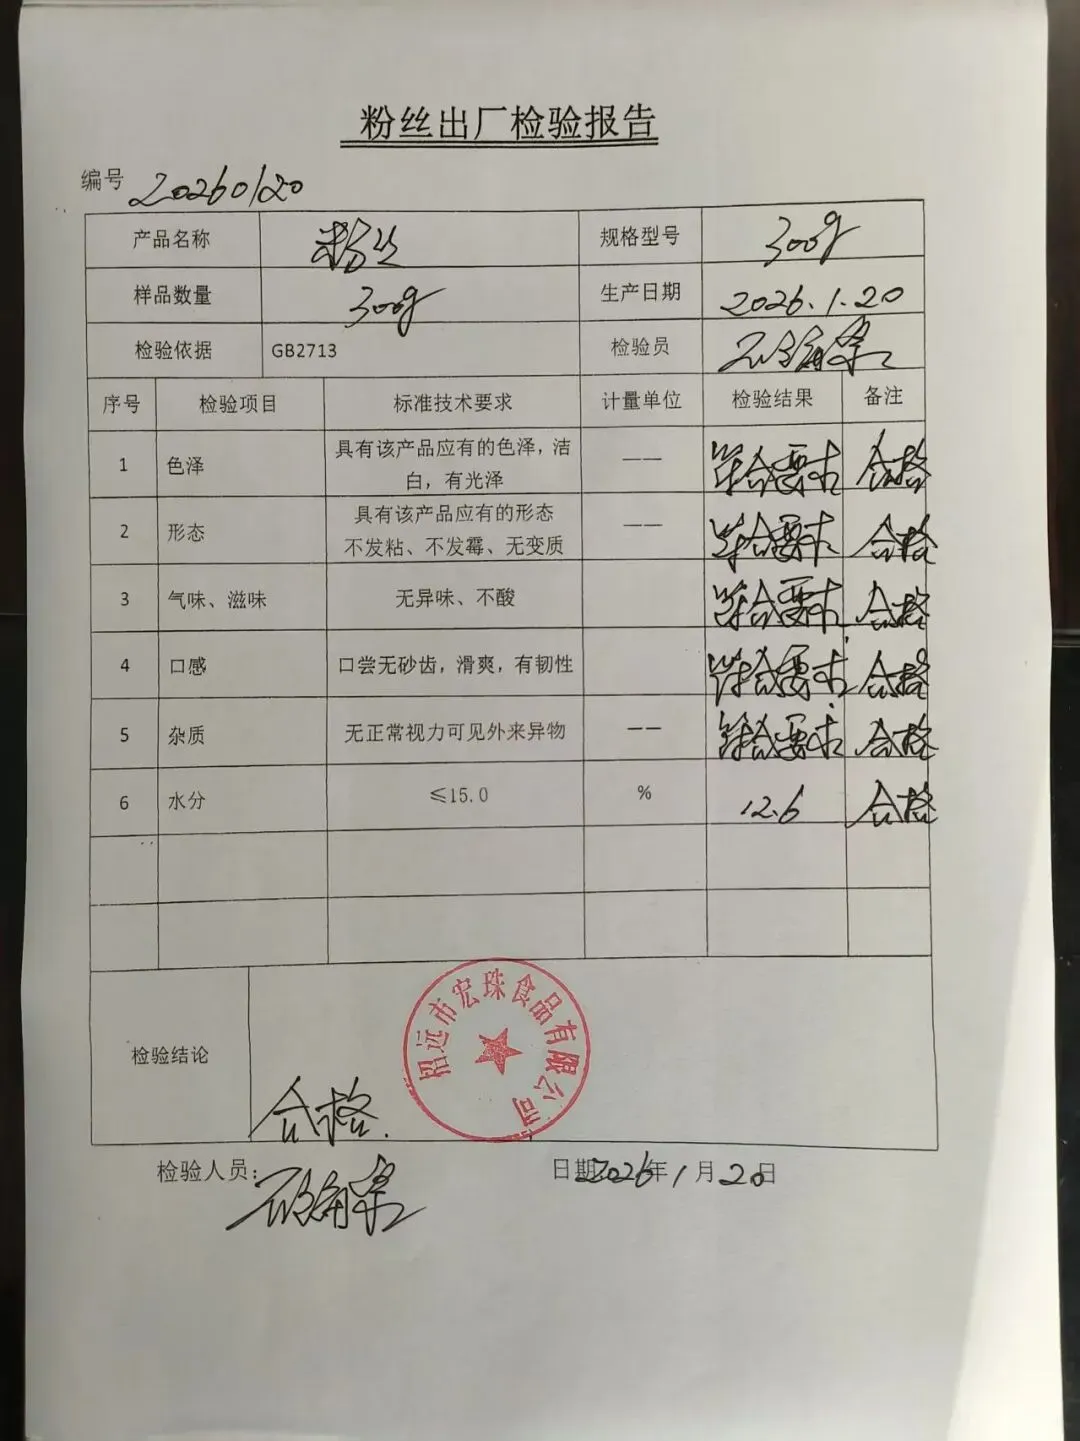 粉丝出厂检验报告
编号 20260120
产品名称 粉丝 规格型号 300g
样品数量 300g 生产日期 2026.1.20
检验依据 GB2713 检验员
序号 检验项目 标准技术要求 计量单位 检验结果 备注
1 色泽 具有该产品应有的色泽，洁白，有光泽 —— 符合要求 合格
2 形态 具有该产品应有的形态 不发粘、不发霉、无变质 —— 符合要求 合格
3 气味、滋味 无异味、不酸 符合要求 合格
4 口感 口尝无砂齿，滑爽，有韧性 符合要求 合格
5 杂质 无正常视力可见外来异物 —— 符合要求 合格
6 水分 ≤15.0 % 12.6 合格
检验结论 合格.
招远市宏珠食品有限公司
检验人员： 日期2026年1月20日